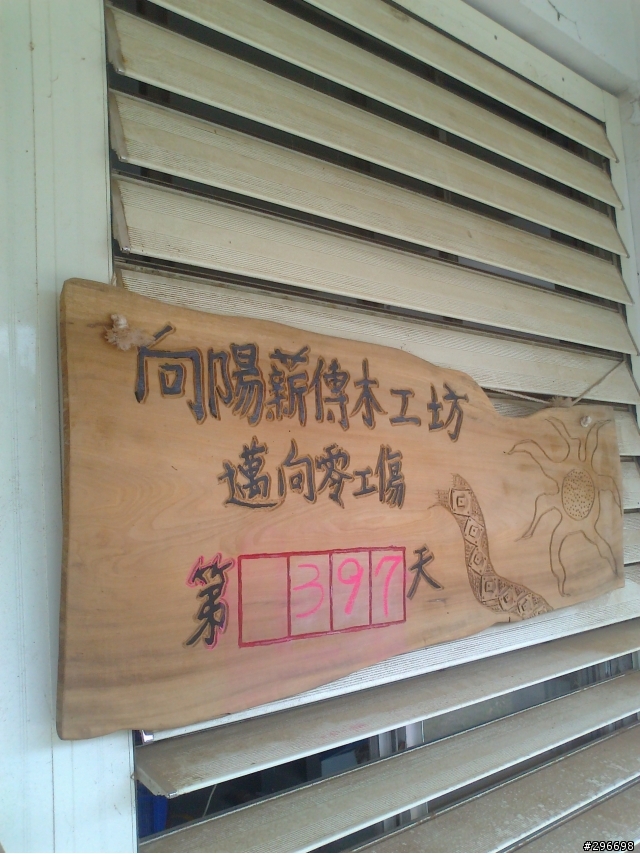 向陽薪傳木工坊
邁向零工傷
第 397天
#296698